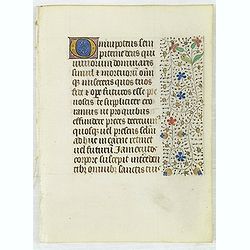 Omnipotens sem
piterne deus qui
vivorum dominaris
simul et mortuorum omni
misereris quos tuos
fide et opere futuros esse pre
noscis te supplices exo
ramus ut pro quibus
effundere preces decrevim
quosque vel presens seculum
adhuc in carne retinet
vel futurum Jam exutos
corpore suscepit interceden
tibus omnibus sanctis tuis